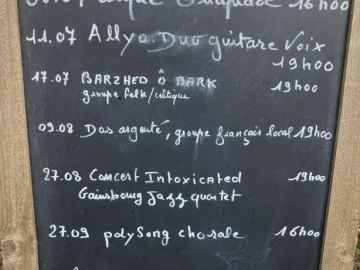 16h00
11.07 Allyo Duo guitare Voix
19h00
17.07 BARZHED Ô BARK 19h00
groupe folk/celtique
09.08 Dos argenté, groupe français local 19h00
27.08 Concert Intoxicated 19h00
Gainsbourg Jazz quartet
27.09 polySong chorale 16h00